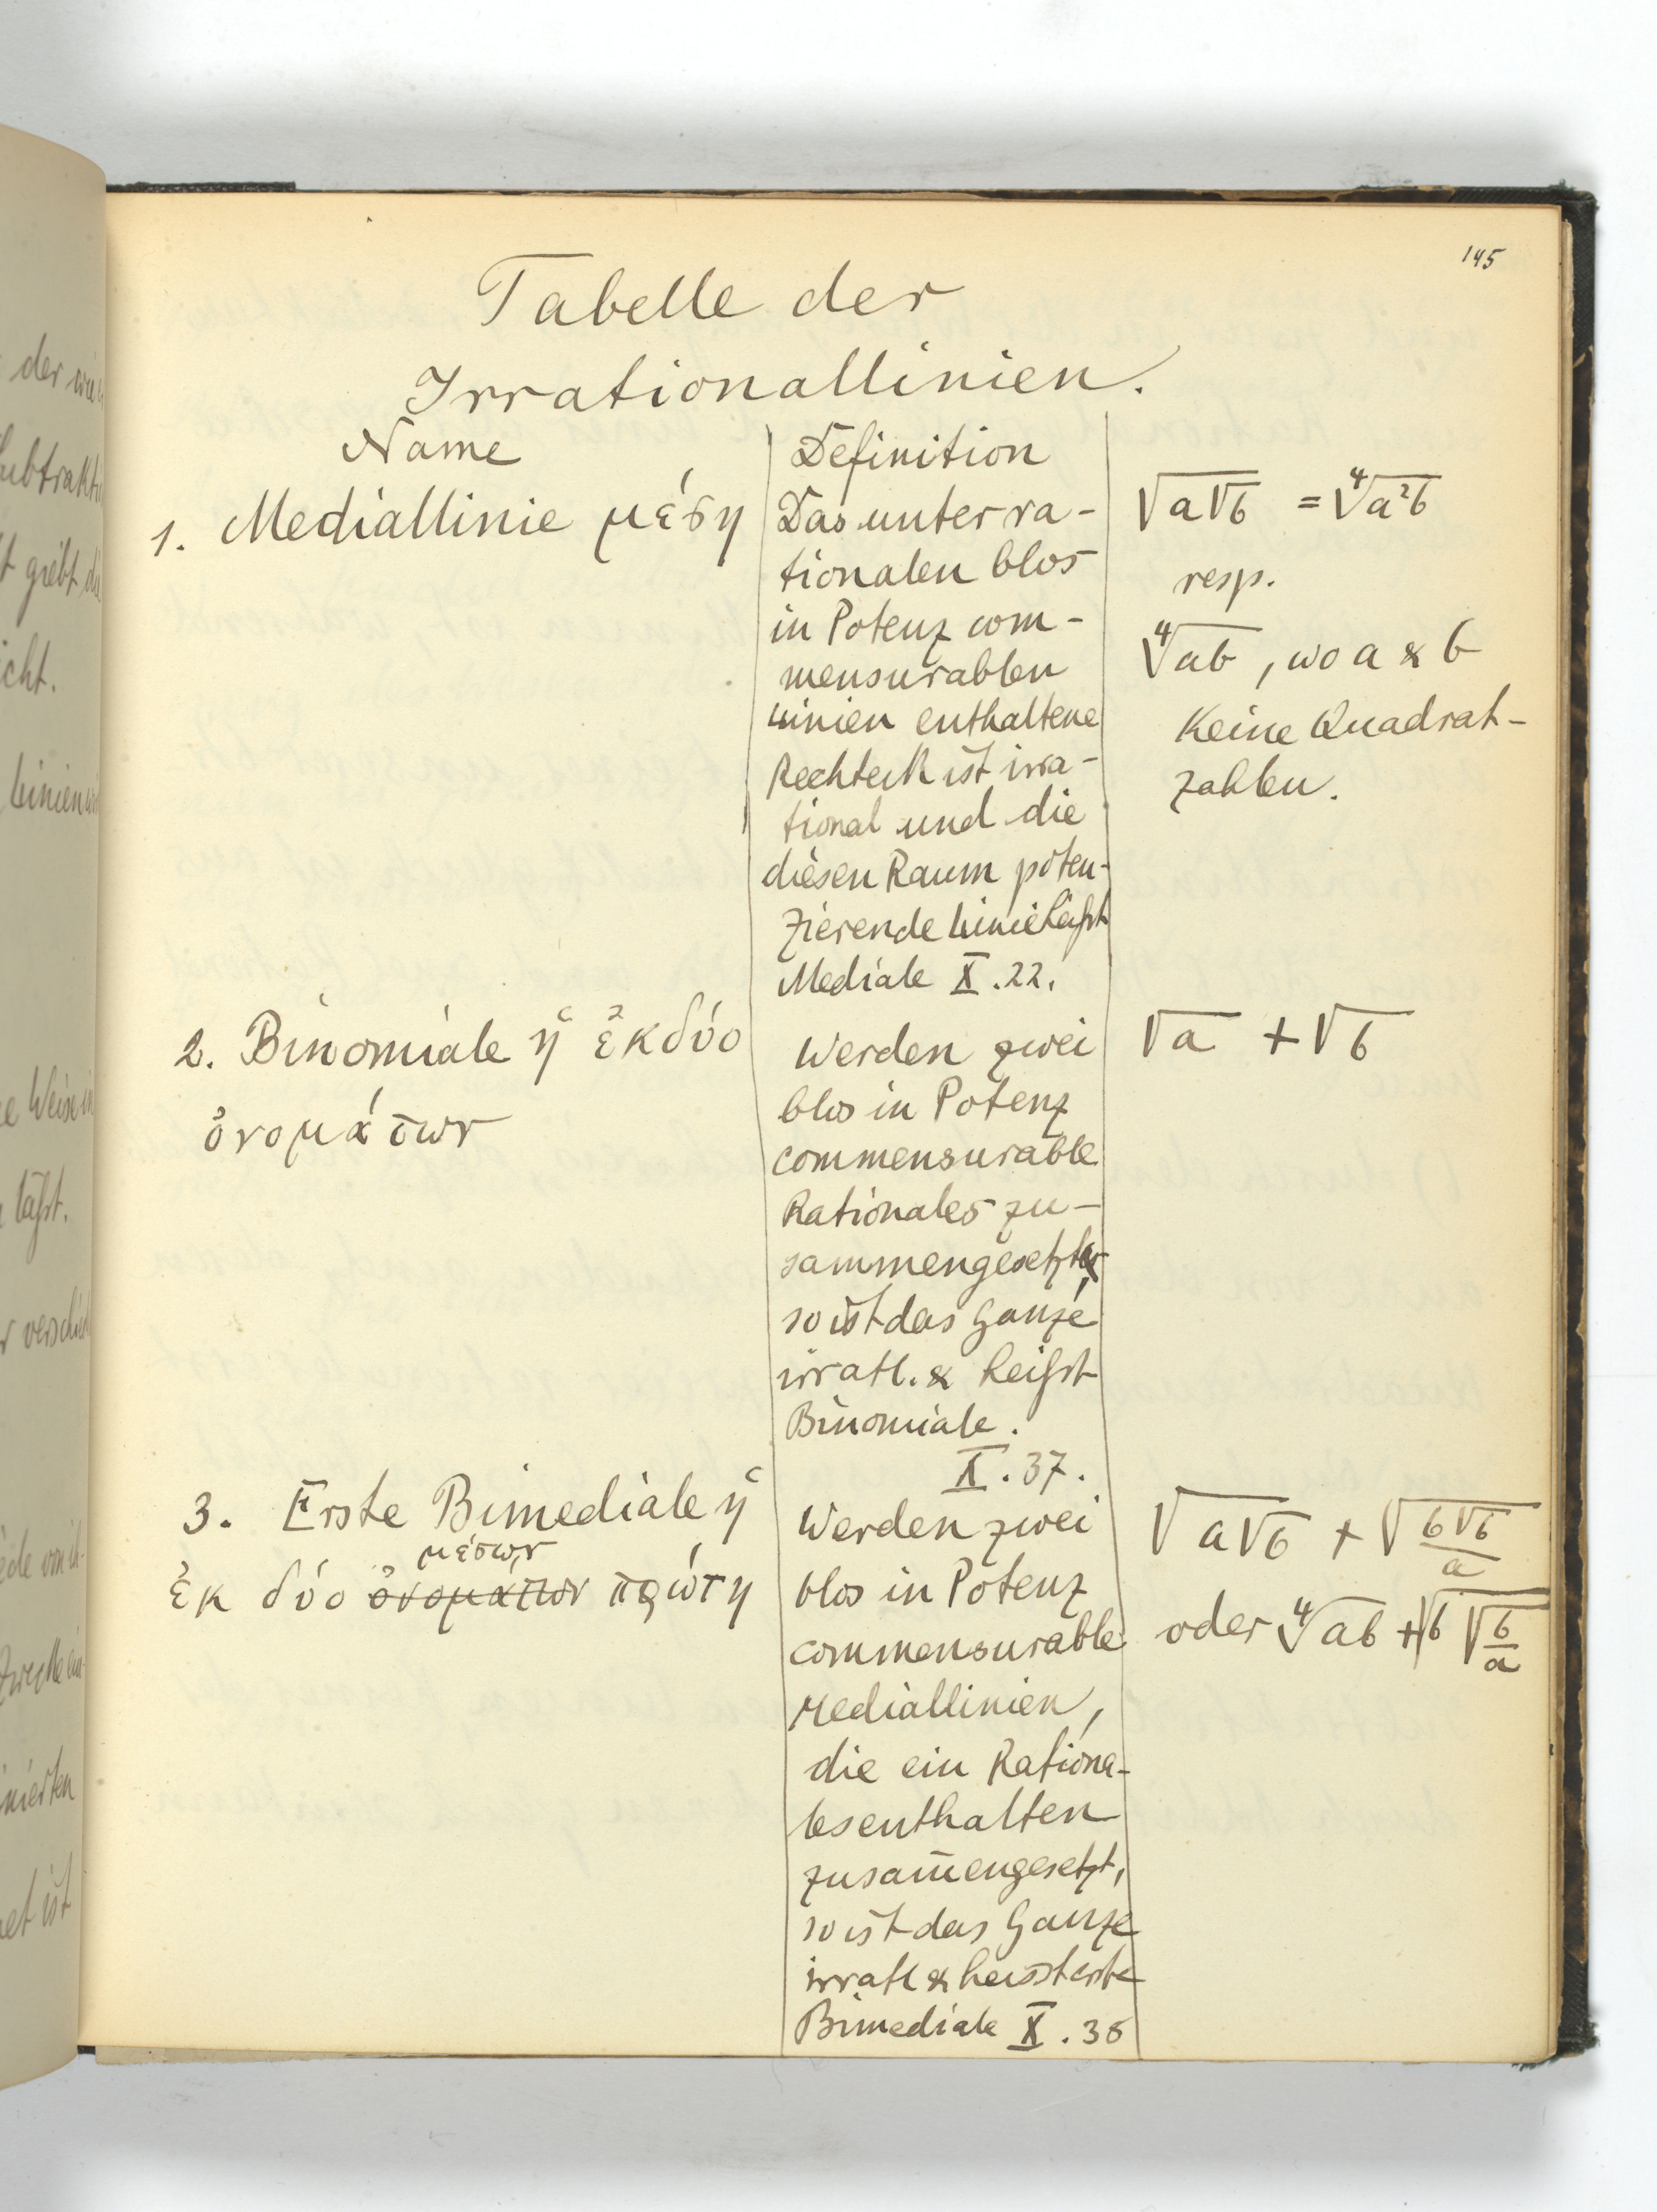 145
Tabelle der
Irrationallinien.
Name
1. Mediallinie μέση
Definition
Das unter ra-
tionalen blos
in Potenz com-
mensurablen
Linien enthaltene
Rechteck ist irra-
tional und die
diesen Raum poten-
zierende Linie heißt
Mediale X.22.
√a√b = ∜a²b
resp.
∜ab, wo a & b
Keine Quadrat-
zahlen.
2. Binomiale ἡ ἐκ δύο
ὀνομάτων
Werden zwei
blos in Potenz
commensurable
Rationales zu-
sammengesetzt
so ist das Ganze
irratl. & heißt
Binomiale.
X.37.
√a + √b
3. Erste Bimediale ἡ
μέσων
ἐκ δύο ὀνομάτων πρώτη
Werden zwei
blos in Potenz
commensurable
Mediallinien,
die ein Rationa-
les enthalten
zusam̄engesetzt,
so ist das Ganze
irratl & heisst erste
Bimediale X.38
√a√b + √b√b/a
oder ∜ab + √b√b/a
der
Subtrakti
t giebt die
icht.
Linien
e Weise in
läßt.
r verschied
nierten
et ist